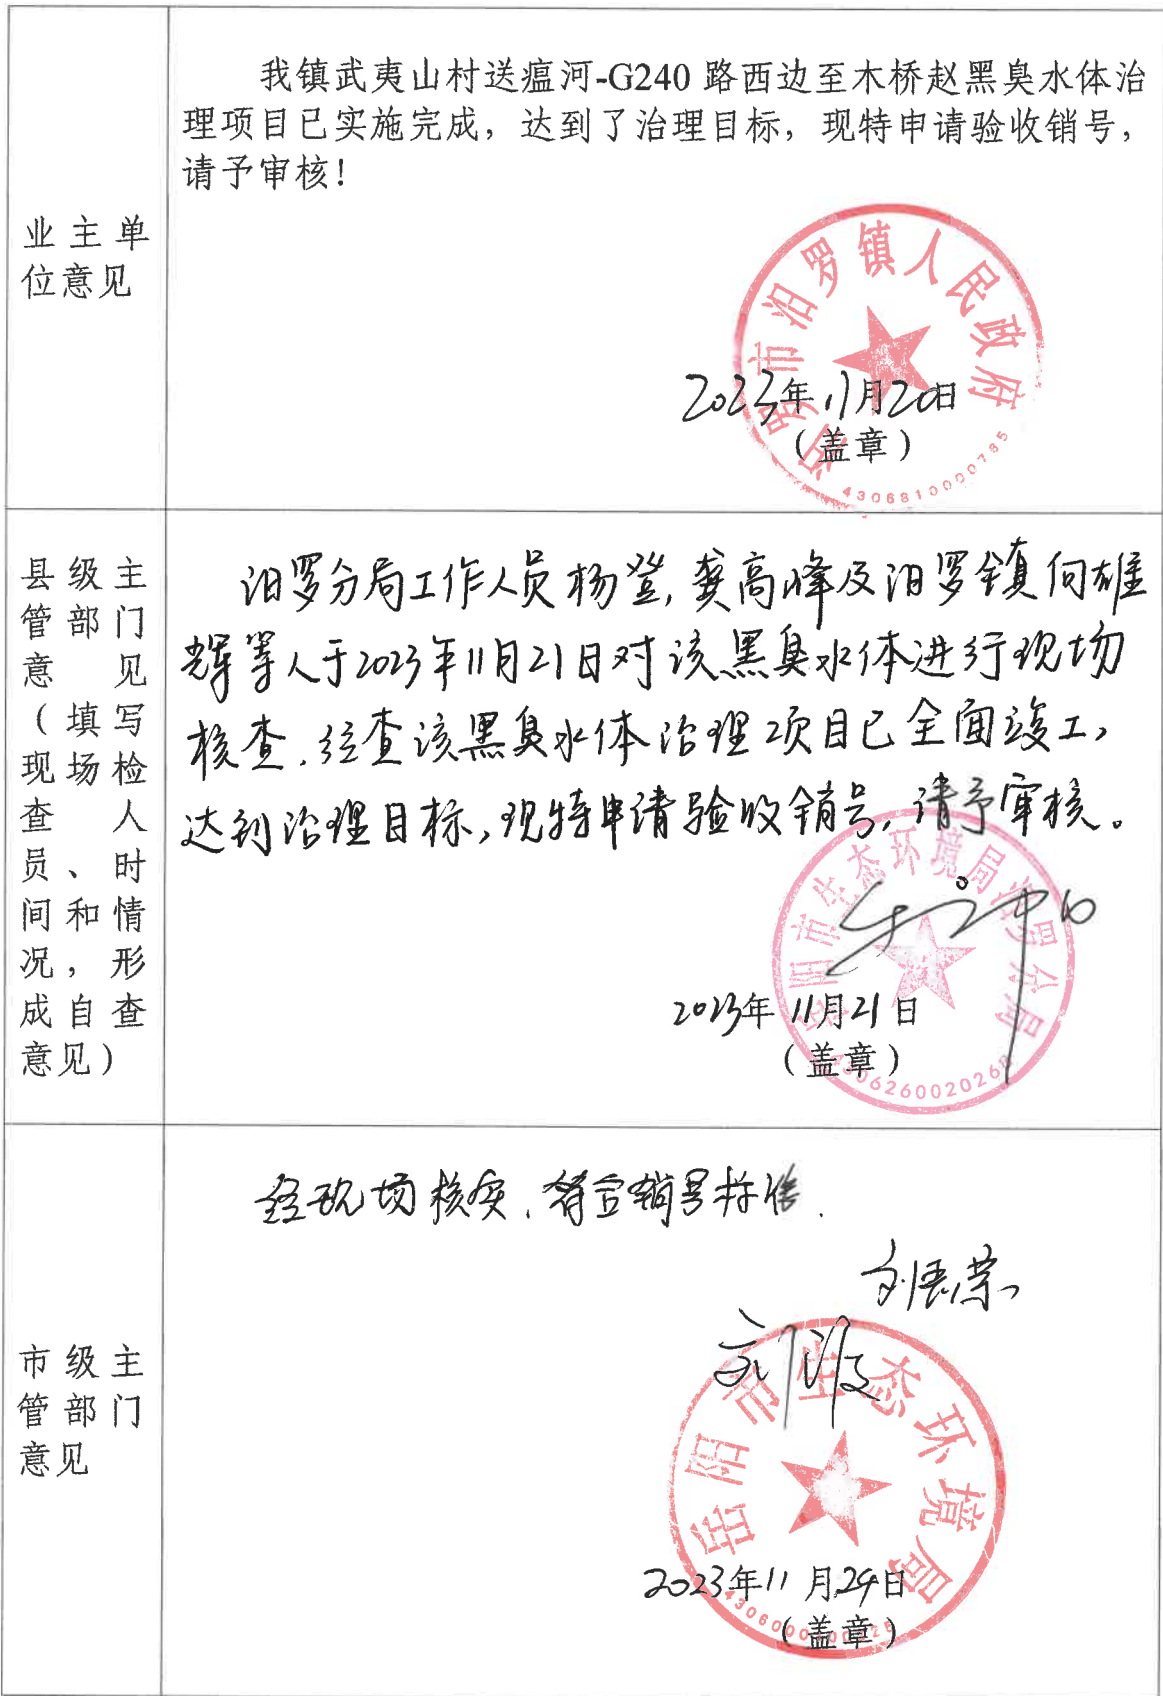 我镇武夷山村送瘟河-G240 路西边至木桥赵黑臭水体治
理项目已实施完成，达到了治理目标，现特申请验收销号，
请予审核！
业主单
位意见
汨罗市汨罗镇人民政府
2023年11月20日
（盖章）
4306810000785
县级主
管部门
意见
（填写
现场检
查人
员、时
间和情
况，形
成自查
意见）
汨罗分局工作人员杨登，龚高峰及汨罗镇何雄
辉等人于2023年11月21日对该黑臭水体进行现场
核查，经查该黑臭水体治理项目已全面竣工，
达到治理目标，现特申请验收销号，请予审核。
岳阳市生态环境局汨罗分局
2023年11月21日
（盖章）
经现场核实，符合销号标准.
市级主
管部门
意见
岳阳市生态环境局
2023年11月24日
（盖章）